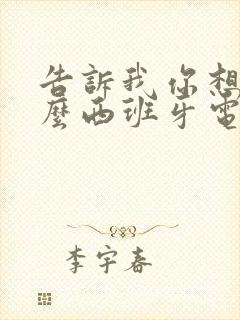 告訴我你想
麼西班牙電
李宇春